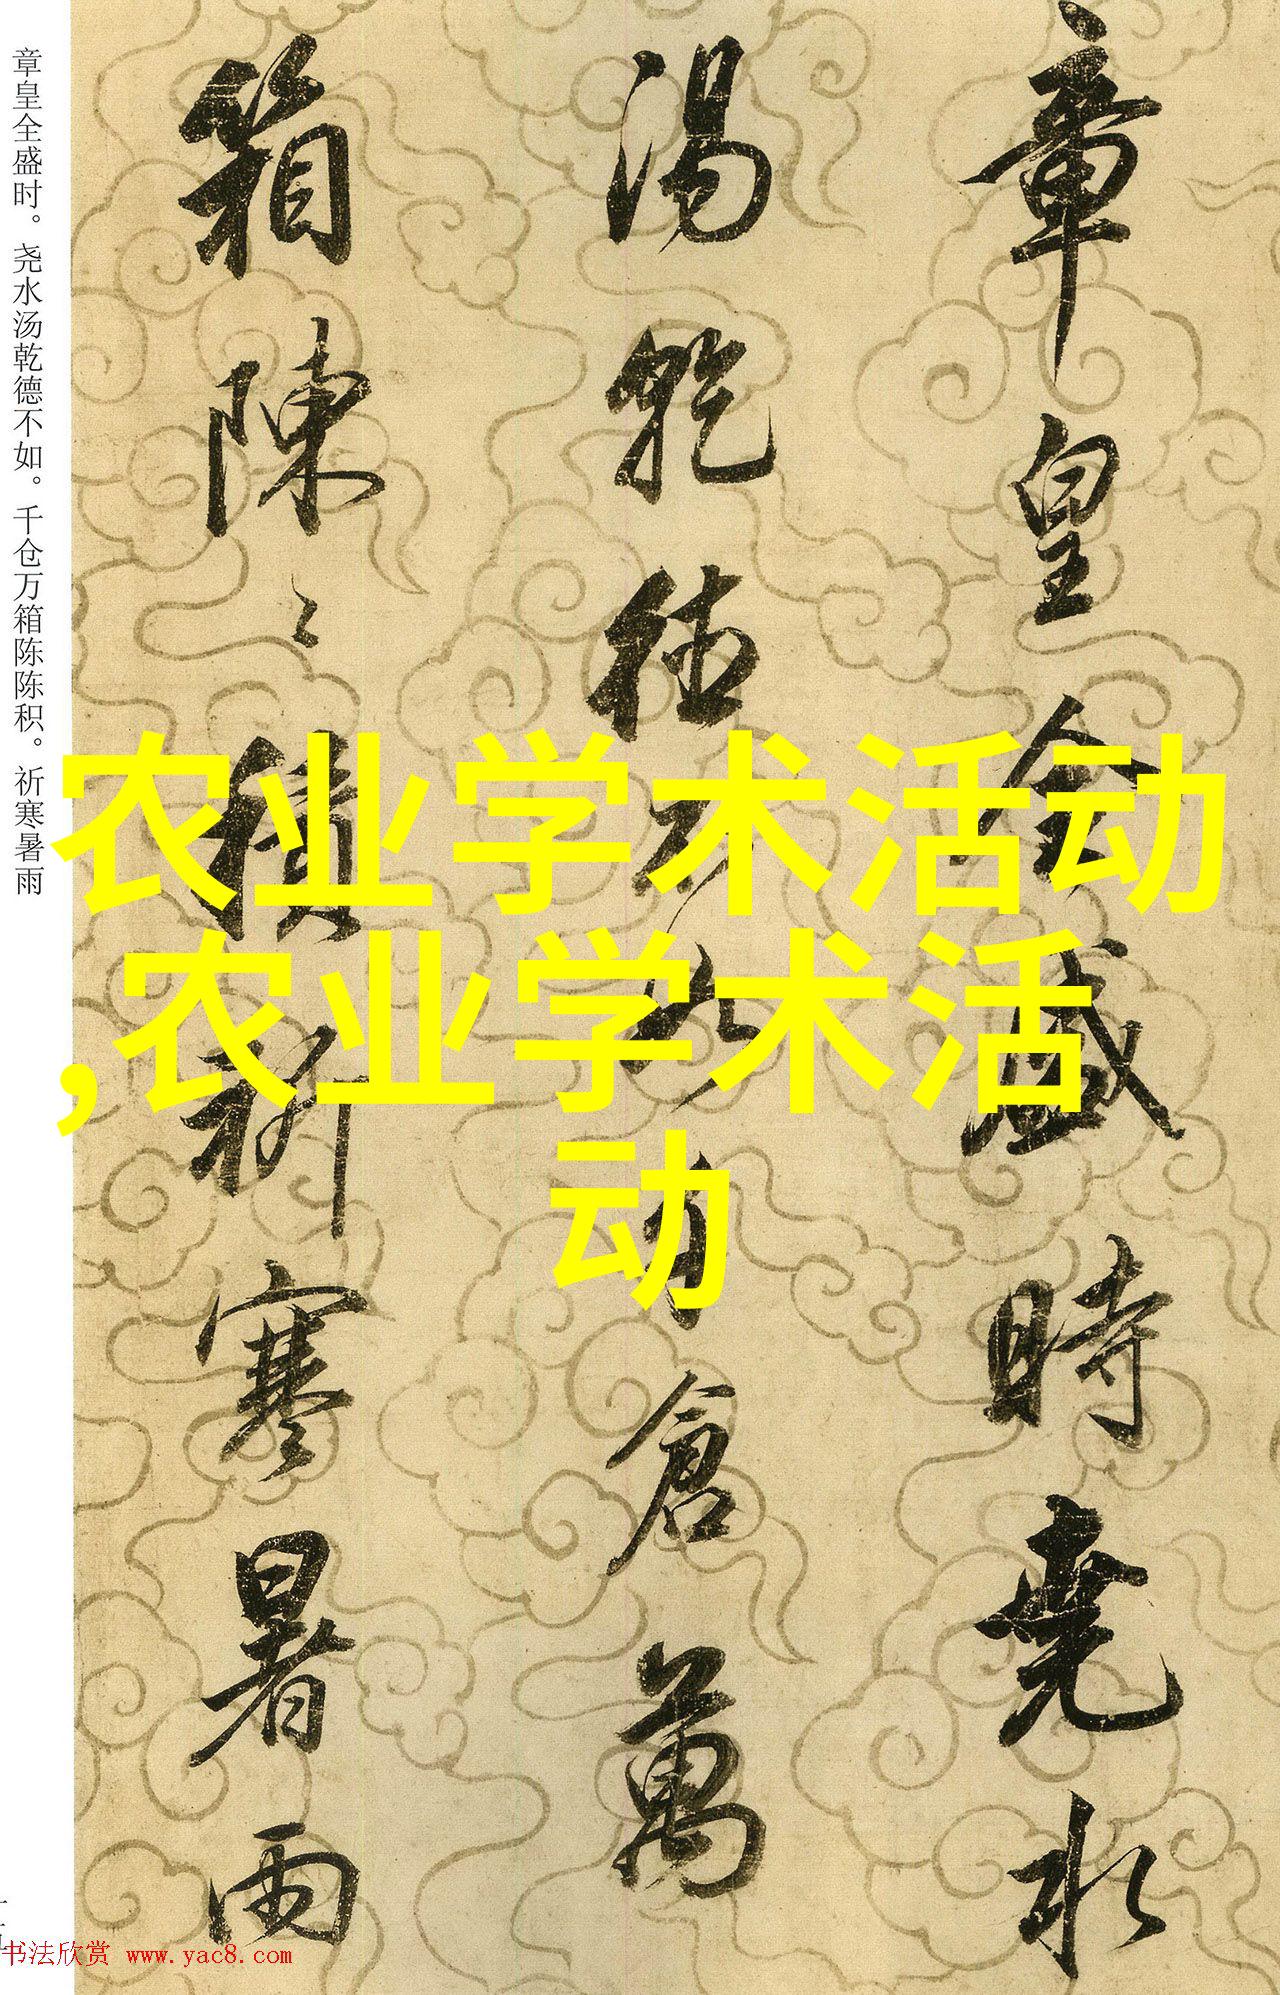 章皇全盛時堯水
湯乾德不如千倉萬
箱陳〻積祈寒暑雨
章皇全盛时。尧水汤乾德不如。千仓万箱陈陈积。祈寒暑雨
农业学术活动
,农业学术活
动
书法欣赏 www.yac8.com